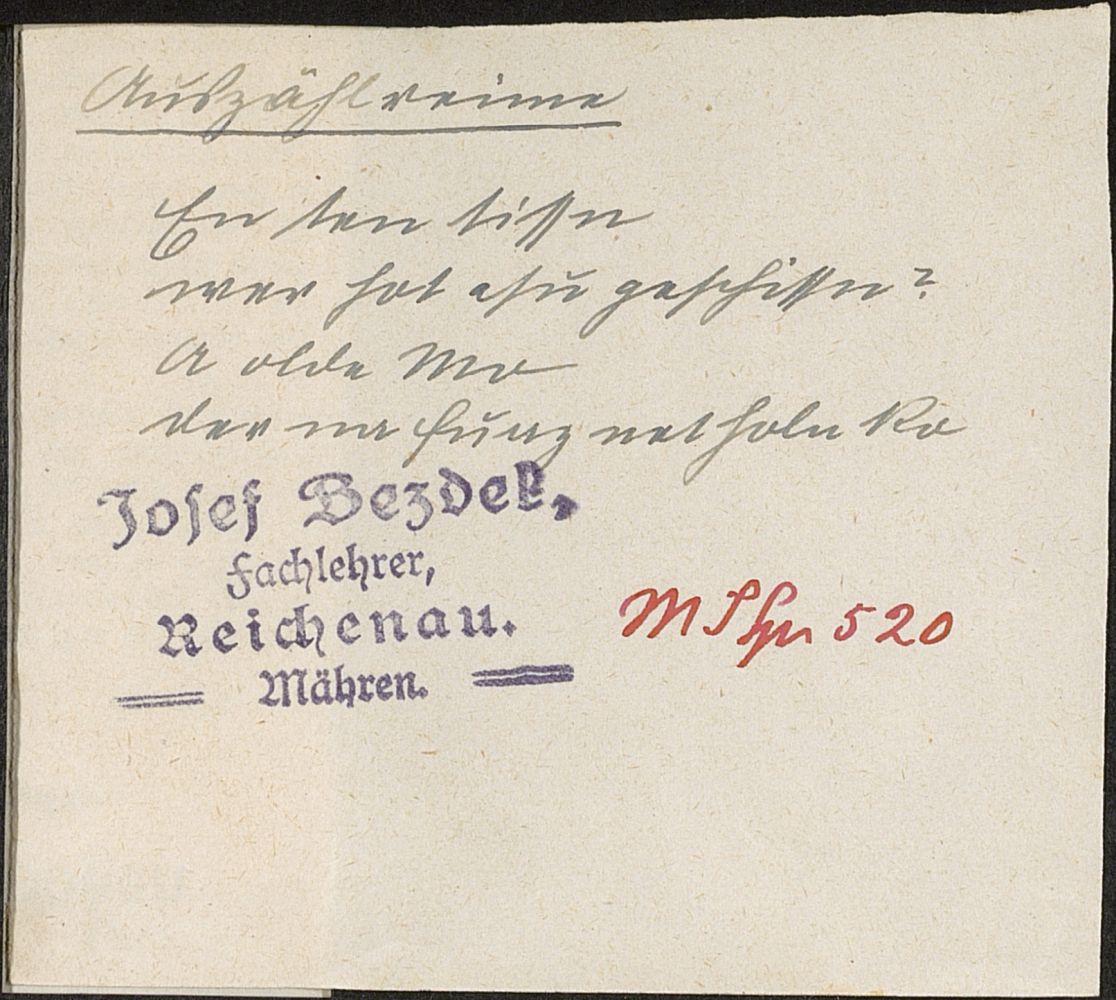 Auszählreime
En ten tissn
wer hot asu geschissn?
A olde Mo
der na Furz net holn ko
Josef Bezdek,
Fachlehrer,
Reichenau.
Mähren.
520